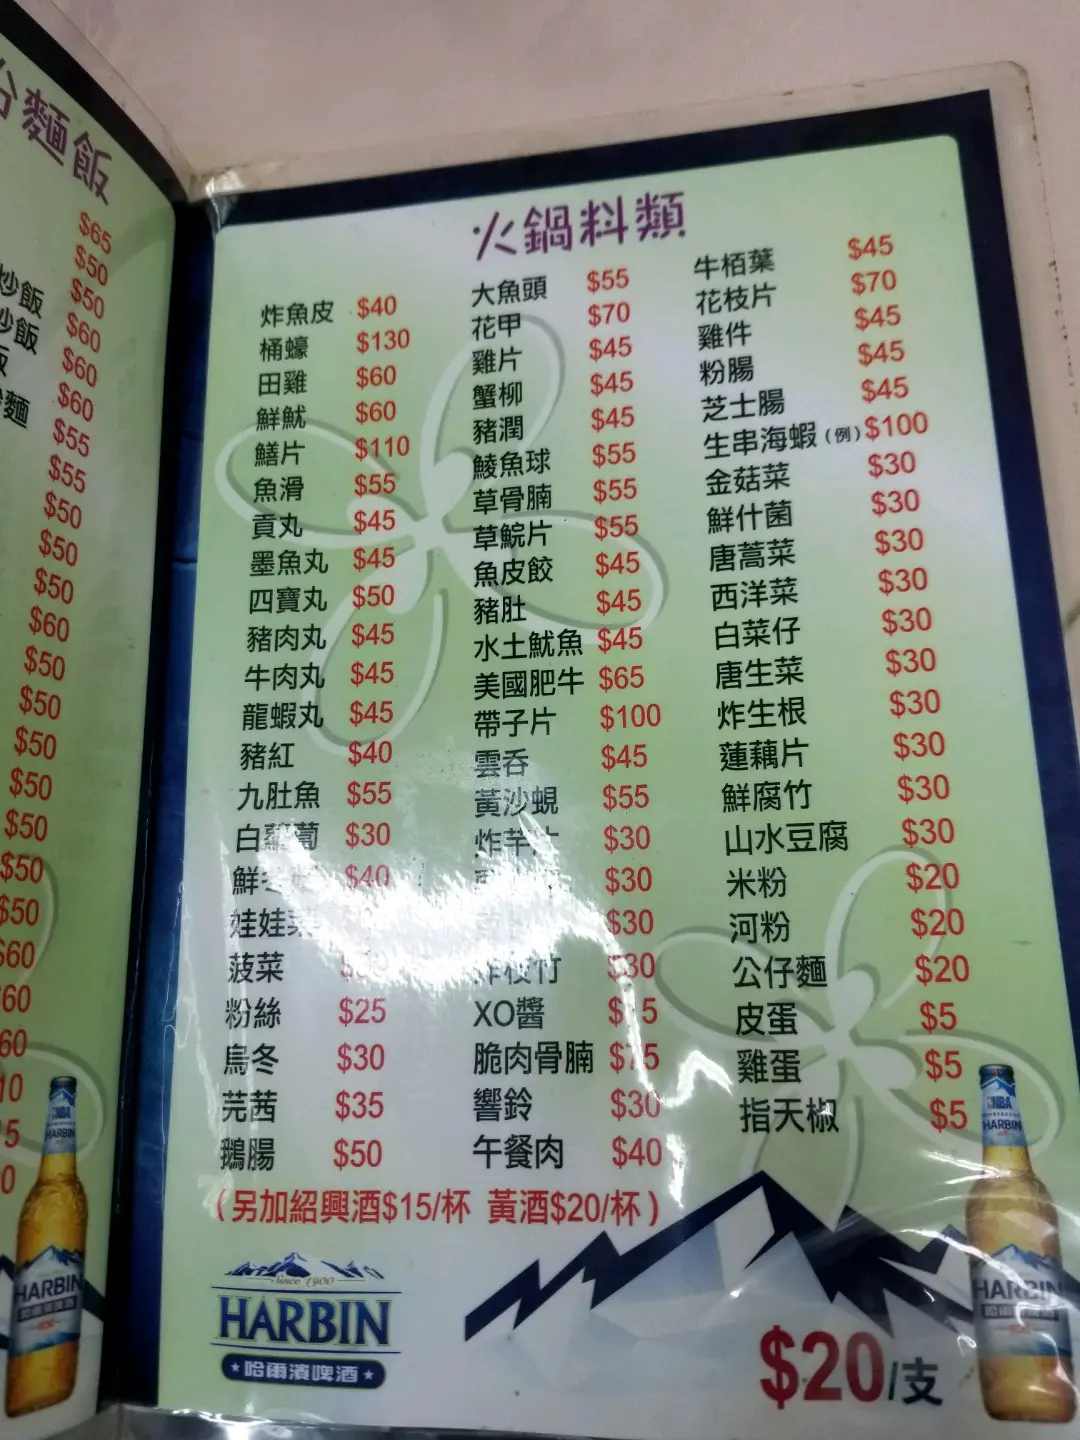 台麵飯
$65
$50
炒飯 $50
炒飯 $60
飯 $60
麵 $60
$55
$55
$50
$50
$50
$60
$50
$50
$50
$50
$50
$50
$50
$60
火鍋料類
炸魚皮 $40
桶蠔 $130
田雞 $60
鮮魷 $60
鱔片 $110
魚滑 $55
貢丸 $45
墨魚丸 $45
四寶丸 $50
豬肉丸 $45
牛肉丸 $45
龍蝦丸 $45
豬紅 $40
九肚魚 $55
白蘿蔔 $30
鮮 $40
娃娃菜
菠菜
粉絲 $25
烏冬 $30
芫茜 $35
鵝腸 $50
大魚頭 $55
花甲 $70
雞片 $45
蟹柳 $45
豬潤 $45
鯪魚球 $55
草骨腩 $55
草鯇片 $55
魚皮餃 $45
豬肚 $45
水土魷魚 $45
美國肥牛 $65
帶子片 $100
雲吞 $45
黃沙蜆 $55
炸芋片 $30
$30
$30
炸枝竹 $30
XO醬
脆肉骨腩 $75
響鈴 $30
午餐肉 $40
牛栢葉 $45
花枝片 $70
雞件 $45
粉腸 $45
芝士腸 $45
生串海蝦(例) $100
金菇菜 $30
鮮什菌 $30
唐蒿菜 $30
西洋菜 $30
白菜仔 $30
唐生菜 $30
炸生根 $30
蓮藕片 $30
鮮腐竹 $30
山水豆腐 $30
米粉 $20
河粉 $20
公仔麵 $20
皮蛋 $5
雞蛋 $5
指天椒 $5
(另加紹興酒$15/杯 黃酒$20/杯)
Since 1900
HARBIN
★哈爾濱啤酒★
$20/支
NBA
HARBIN
HARBIN
NBA
HARBIN
HARBIN